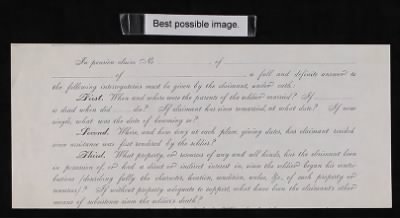 Best possible image.
In pension claim No of
of , a full and definite answer to
the following interrogatories must be given by the claimant, under oath:
First. When and where were the parents of the soldier married? If
is dead when did die? If claimant has since remarried, at what date? If now
single, what was the date of becoming so?
Second. Where, and how long at each place, giving dates, has claimant resided
since assistance was first rendered by the soldier?
Third. What property, or sources of any and all kinds, has the claimant been
in possession of, or had a direct or indirect interest in, since the soldier began his contri-
butions (describing fully the character, location, condition, value, &c., of each property or
sources)? If without property adequate to support, what have been the claimant's other
means of subsistence since the soldier's death?